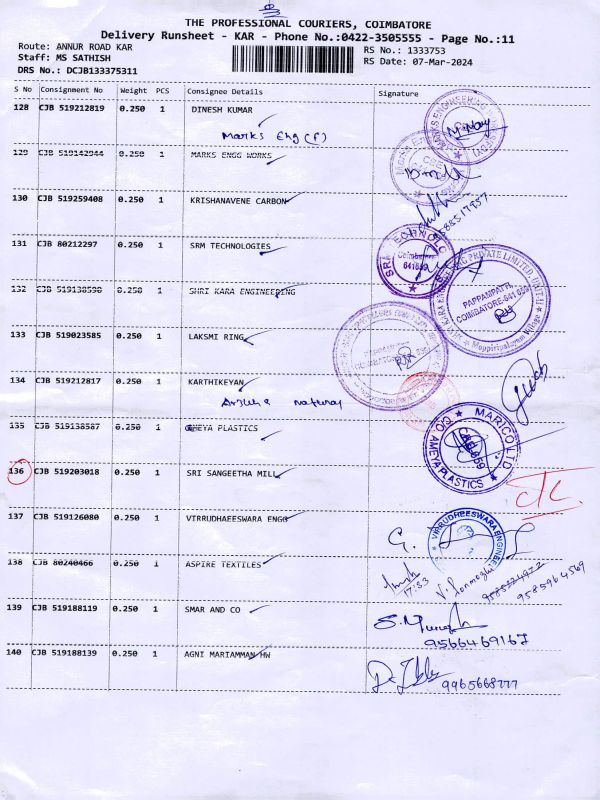 THE PROFESSIONAL COURIERS, COIMBATORE
Delivery Runsheet - KAR - Phone No.:0422-3505555 - Page No.:11
Route: ANNUR ROAD KAR
RS No.: 1333753
Staff: MS SATHISH
RS Date: 07-Mar-2024
DRS No.: DCJB133375311
S No Consignment No Weight PCS Consignee Details Signature
128 CJB 519212819 0.250 1 DINESH KUMAR
Marks Eng (P)
129 CJB 519142944 0.250 1 MARKS ENGG WORKS
130 CJB 519259408 0.250 1 KRISHANAVENE CARBON
131 CJB 80212297 0.250 1 SRM TECHNOLOGIES
SRM TECHNOLO
Coimbatore
132 CJB 519138598 0.250 1 SHRI KARA ENGINEERING
PAPPAMPATTI,
COIMBATORE-641
133 CJB 519023585 0.250 1 LAKSMI RING
134 CJB 519212817 0.250 1 KARTHIKEYAN
135 CJB 519138587 0.250 1 AMEYA PLASTICS
MARICO LTD
CO. AMEYA PLASTICS
136 CJB 519203018 0.250 1 SRI SANGEETHA MILL
137 CJB 519126080 0.250 1 VIRRUDHAEESWARA ENGG
138 CJB 80240466 0.250 1 ASPIRE TEXTILES
17:53
9585964569
139 CJB 519188119 0.250 1 SMAR AND CO
9566469167
140 CJB 519188139 0.250 1 AGNI MARIAMMAN HW
9965668777